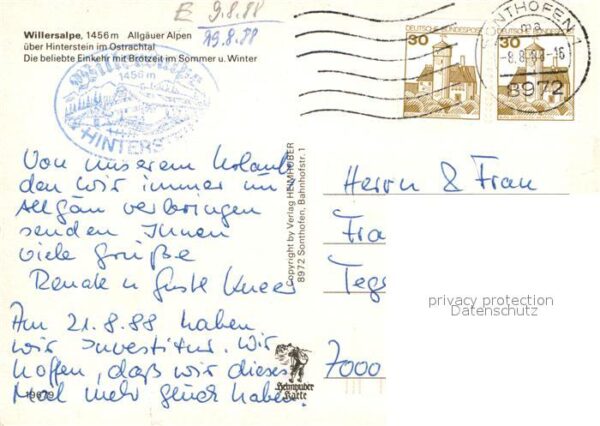 E 9.8.88
19.8.88
Willersalpe, 1456 m Allgäuer Alpen
über Hinterstein im Ostrachtal
Die beliebte Einkehr mit Brotzeit im Sommer u. Winter
1456 m
HINTERS
DEUTSCHE BUNDESPOST
30
DEUTSCHE BUNDESPOST
30
SONTHOFEN 1
ma
-8.8.88-16
8972
Von unserem Urlaub
den wir immer im
Allgäu verbringen
senden Ihnen
viele Grüße
Renate u.
Am 21.8.88 haben
wir Investitur. Wir
hoffen, daß wir dieses
Mal mehr Glück haben.
19679
Copyright by Verlag HEIMHUBER
8972 Sonthofen, Bahnhofstr. 1
Heimhuber
Karte
Herrn & Frau
Fra
Tegs
7000
privacy protection
Datenschutz